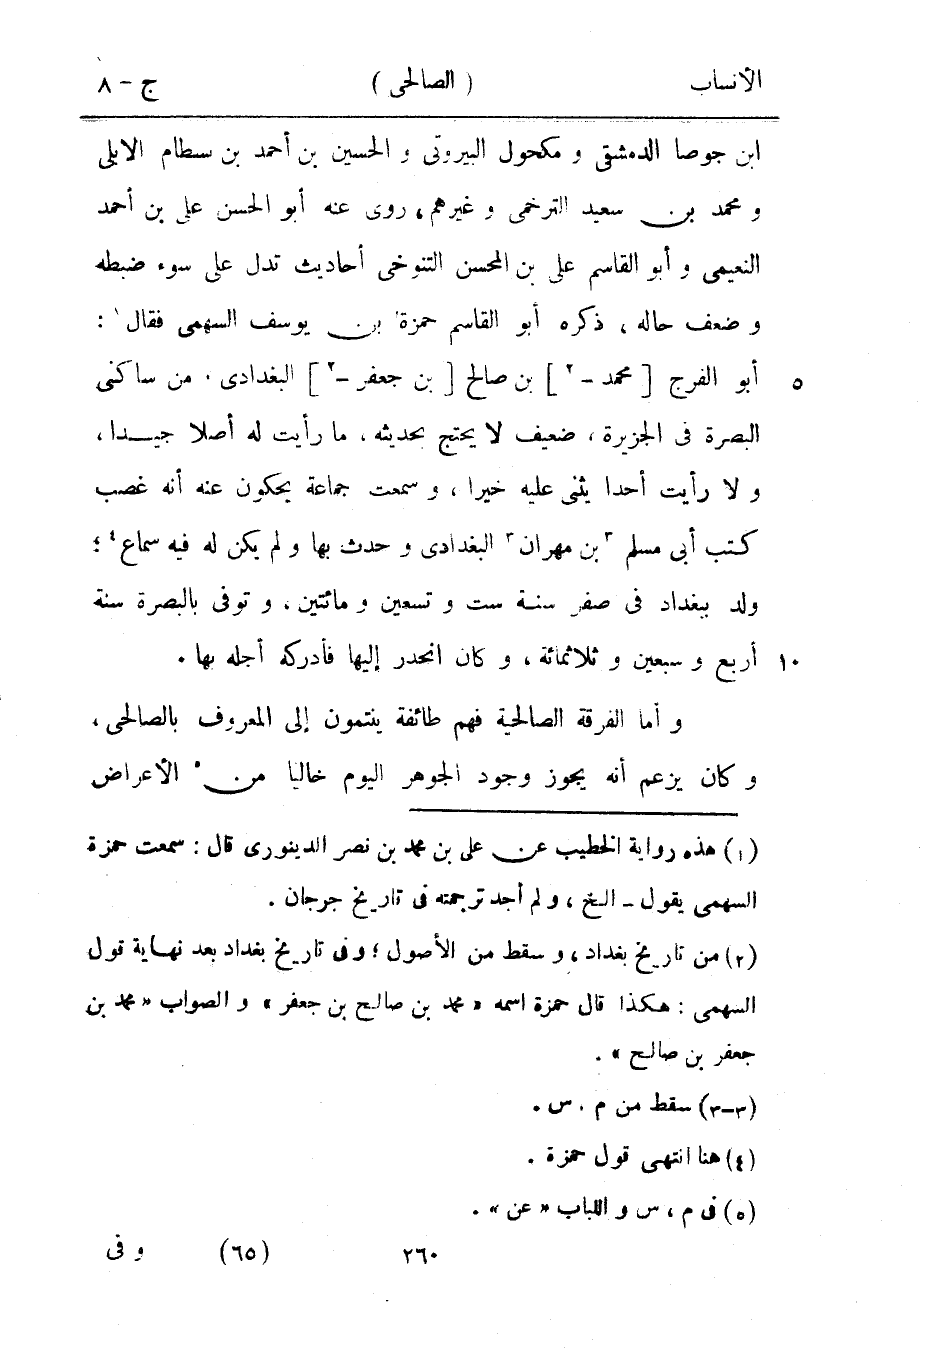 الأنساب ( الصالحى ) ج – ٨
ابن جوصا الدمشقى و مكحول البيروتى و الحسين بن أحمد بن بسطام الابلى
و محمد بن سعيد الترخمى و غيرهم، روى عنه أبو الحسن على بن أحمد
النعيمى و أبو القاسم على بن المحسن التنوخى أحاديث تدل على سوء ضبطه
و ضعف حاله ، ذكره أبو القاسم حمزة بن يوسف السهمى فقال ١ :
٥ أبو الفرج [ محمد – ٢ ] بن صالح [ بن جعفر – ٢ ] البغدادى . من ساكنى
البصرة فى الجزيرة ، ضعيف لا يحتج بحديثه ، ما رأيت له أصلا جيدا ،
و لا رأيت أحدا يثنى عليه خيرا ، و سمعت جماعة يحكون عنه أنه غصب
كتب أبى مسلم ٣ بن مهران ٣ البغدادى و حدث بها و لم يكن له فيه سماع ٤ ؛
ولد ببغداد فى صفر سنة ست و تسعين و مائتين ، و توفى بالبصرة سنة
١٠ أربع و سبعين و ثلاثمائة ، و كان انحدر إليها فأدركه أجله بها .
و أما الفرقة الصالحية فهم طائفة ينتمون إلى المعروف بالصالحى ،
و كان يزعم أنه يجوز وجود الجوهر اليوم خاليا من ٥ الأعراض
(١) هذه رواية الخطيب عن على بن محمد بن نصر الدينورى قال : سمعت حمزة
السهمى يقول – الخ ، و لم أجد ترجمته فى تاريخ جرجان .
(٢) من تاريخ بغداد ، و سقط من الأصول ؛ و فى تاريخ بغداد بعد نهاية قول
السهمى : هكذا قال حمزة اسمه « محمد بن صالح بن جعفر » و الصواب « محمد بن
جعفر بن صالح » .
(٣–٣) سقط من م ، س .
(٤) هنا انتهى قول حمزة .
(٥) فى م ، س و اللباب « عن » .
٢٦٠ (٦٥) و فى